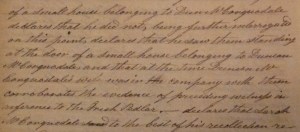 of a small house belonging to Duncan McCorquodale
declares that he did not being further interrogated
on this point declares that he saw them standing
at the door of a small house belonging to Duncan
McCorquodale and that at the time Duncan Mc
Corquodale's wife was in the company with them
corroborates the evidence of preceding witness in
reference to the Irish Pedlar declares that Sarah
McCorquodale said to the best of his recollection